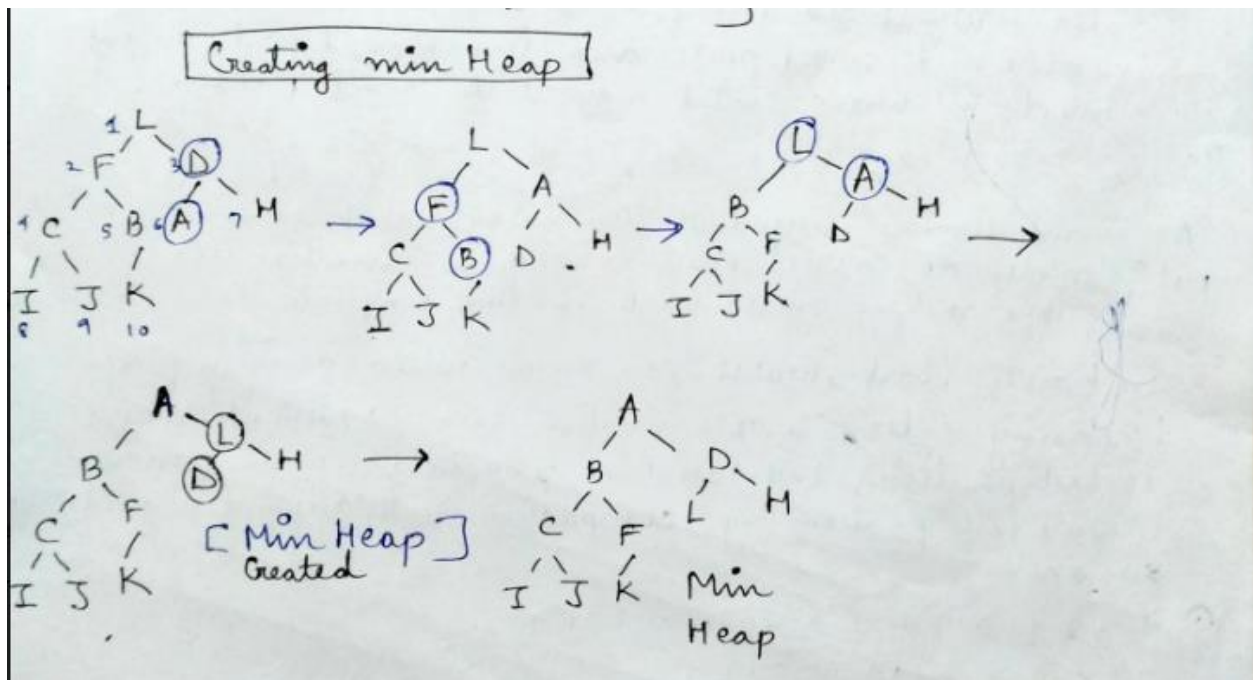 Creating min Heap
1 L
2 F 3 D
4 C 5 B 6 A 7 H
I J K
8 9 10
L
F A
C B D H
I J K
L A
B H
C F D
I J K
A L
B D H
C F
I J K
[Min Heap]
Created
A
B D
C F L H
I J K
Min
Heap